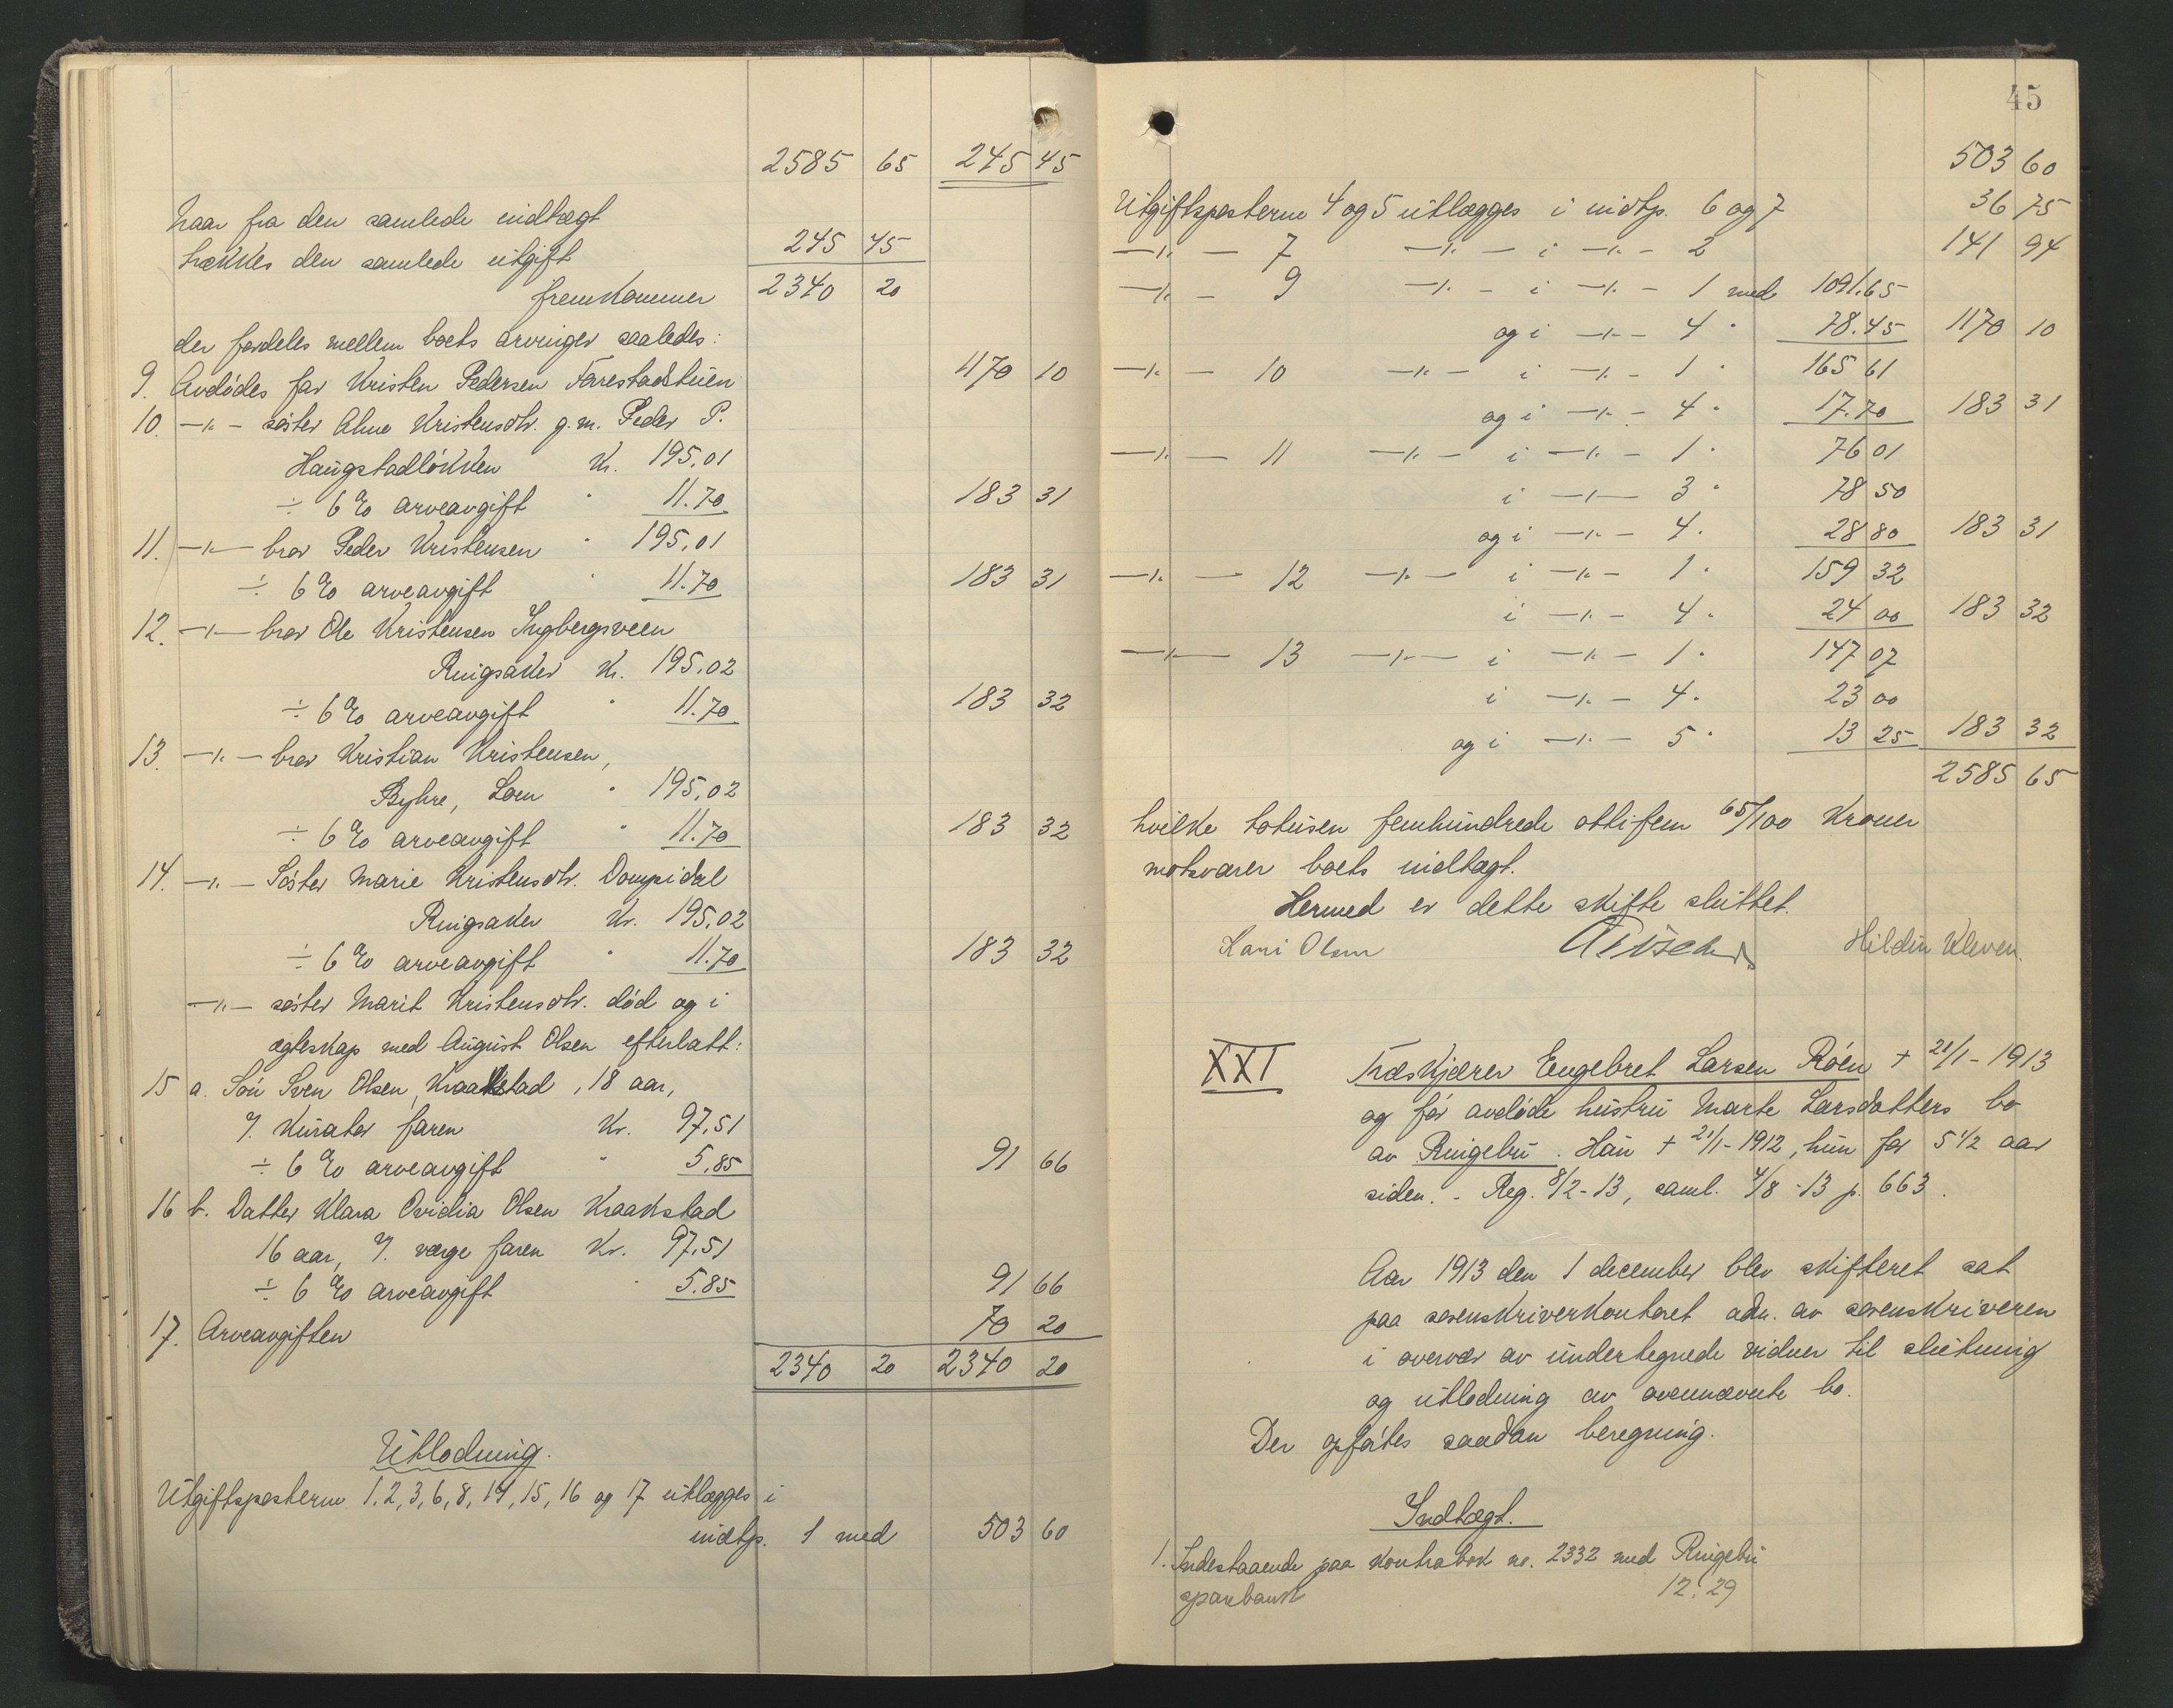 2585 65 245 45
Naar fra den samlede indtægt
trækkes den samlede utgift 245 45
fremkommer 2340 20
der fordeles mellem boets arvinger saaledes:
9. Avdødes far Kristen Pedersen Farestadstuen 1170 10
10. -"- søster Ahne Kristensdtr. g.m. Peder P.
Haugstadløkken Kr. 195.01
÷ 6 % arveavgift " 11.70 183 31
11. -"- bror Peder Kristensen " 195.01
÷ 6 % arveavgift " 11.70 183 31
12. -"- bror Ole Kristensen Ingbergsveen
Ringsaker Kr. 195.02
÷ 6 % arveavgift " 11.70 183 32
13. -"- bror Kristian Kristensen,
Byhre, Lom " 195.02
÷ 6 % arveavgift " 11.70 183 32
14. -"- Søster Marie Kristensdtr. Dompidal
Ringsaker Kr. 195.02
÷ 6 % arveavgift " 11.70 183 32
-"- søster Marit Kristensdtr. død og i
egteskap med August Olsen efterlatt:
15 a. Søn Sven Olsen, Kraakstad, 18 aar,
/. Kurator faren Kr. 97.51
÷ 6 % arveavgift " 5.85 91 66
16 b. Datter Klara Ovidia Olsen Kraakstad
16 aar, /. værge faren Kr. 97.51
÷ 6 % arveavgift " 5.85 91 66
17. Arveavgiften 70 20
2340 20 2340 20
Utlodning.
Utgiftsposterne 1, 2, 3, 6, 8, 14, 15, 16 og 17 utlægges i
indtp. 1 med 503 60
45
503 60
Utgiftsposterne 4 og 5 utlægges i indtp. 6 og 7 36 75
-"- - 7 -"- - i -"- - 2 141 94
-"- - 9 -"- - i -"- - 1 med 1091.65
og i -"- - 4 " 78.45 1170 10
-"- - 10 -"- - i -"- - 1 " 165 61
og i -"- - 4 " 17.70 183 31
-"- - 11 -"- - i -"- - 1 " 76 01
i -"- 3 " 78 50
og i -"- - 4 " 28 80 183 31
-"- - 12 -"- - i -"- - 1 " 159 32
i -"- - 4 " 24 00 183 32
-"- 13 -"- i -"- - 1 " 147 07
i -"- - 4 " 23 00
og i -"- - 5 " 13 25 183 32
2585 65
hvilke totusen femhundrede ottifem 65/100 Kroner
motsvarer boets indtægt.
Hermed er dette skifte sluttet.
Kari Olsen Hildur Kleven.
XXI Træskjærer Engebret Larsen Røen + 21/1-1913
og før avdøde hustru Marte Larsdatters bo
av Ringebu. Han + 21/1-1912, hun for 5 1/2 aar
siden. - Reg. 8/2-13, saml. 4/8-13 p. 663.
Aar 1913 den 1 december blev skifteret sat
paa sorenskriverkontoret adm. av sorenskriveren
i overvær av undertegnede vidner til slutning
og utlodning av ovennævnte bo.
Der opførtes saadan beregning.
Indtægt.
1. Indestaaende paa kontrabok no. 2332 med Ringebu
sparebank 12.29